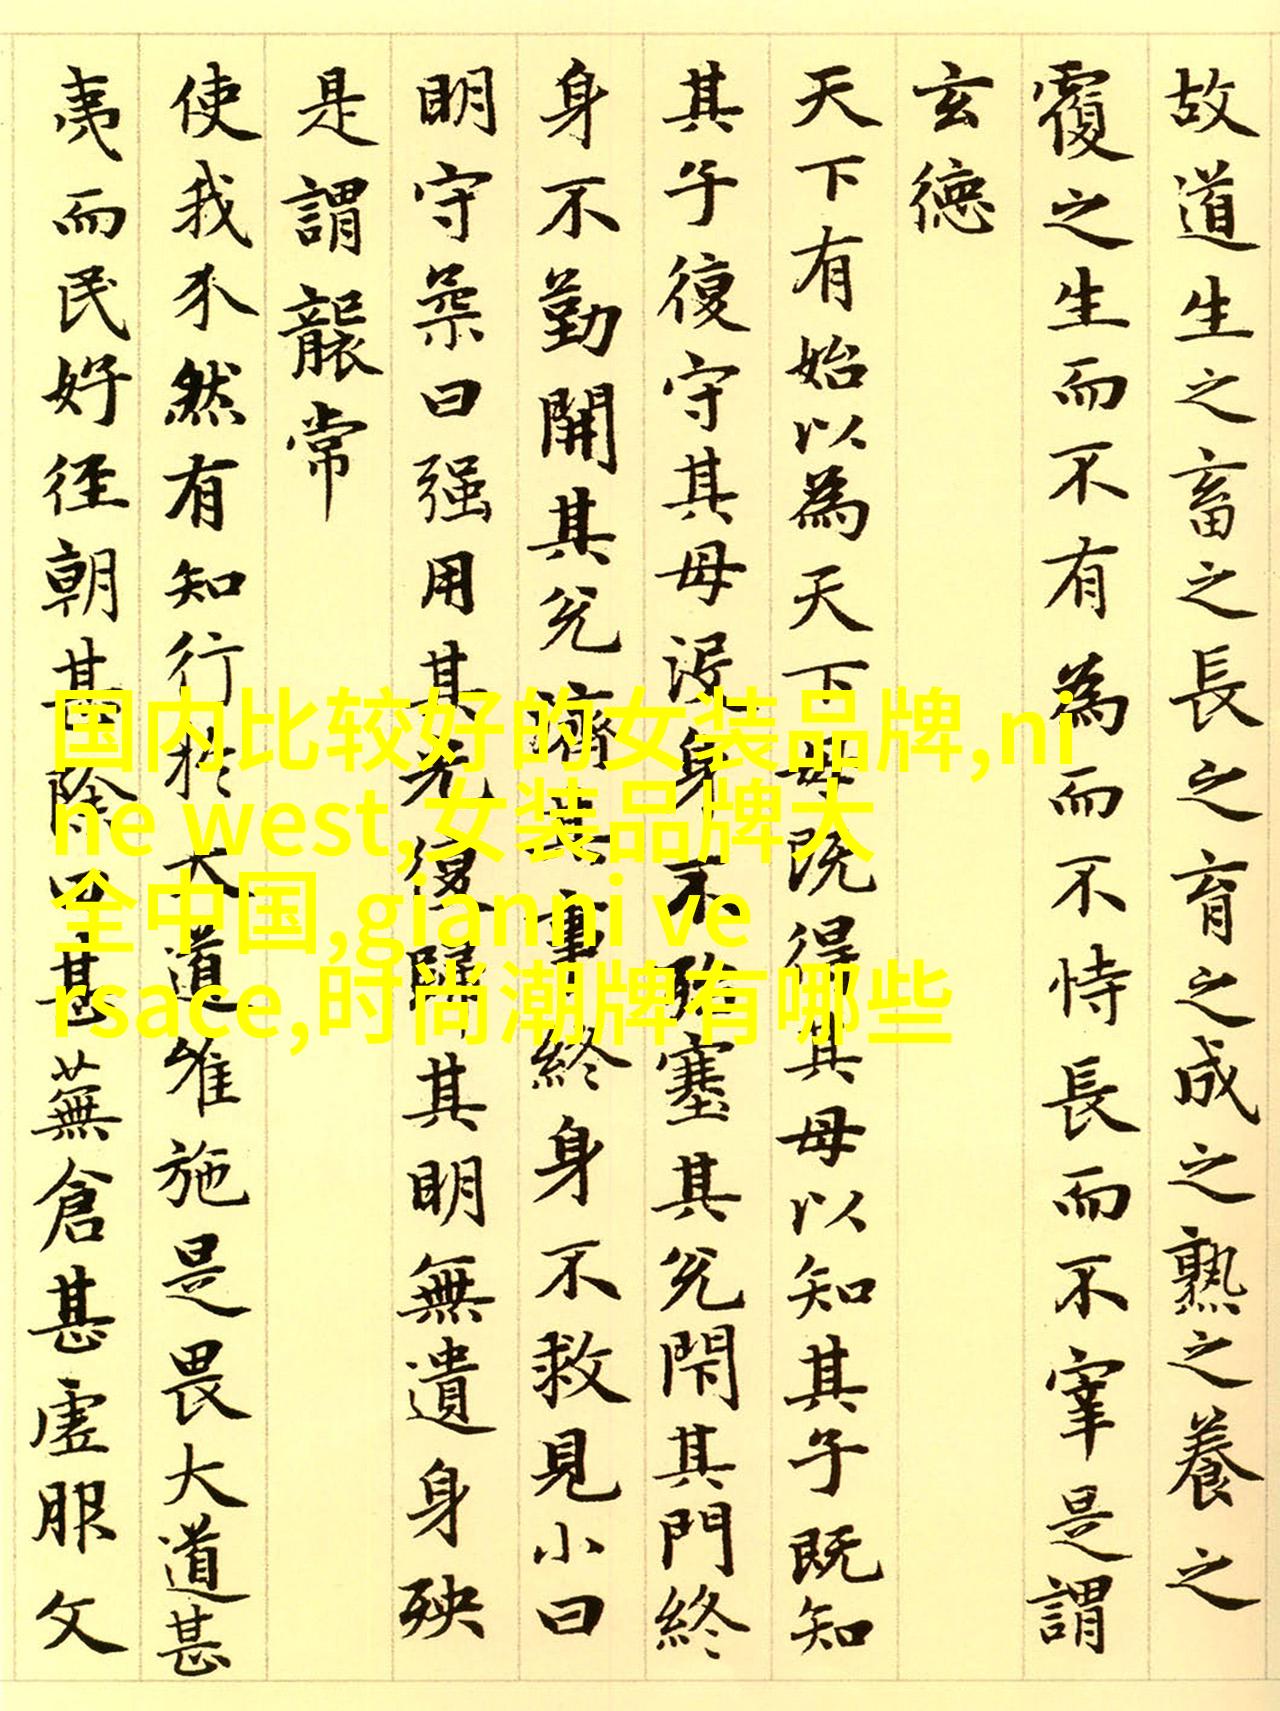 故道生之畜之長之育之成之熟之養之
覆之生而不有為而不恃長而不宰是謂
玄德
天下有始以為天下母既得其母以知其子既知
其子復守其母没身不殆塞其兑閇其門終
身不勤開其兑濟其事終身不救見小曰
明守柔曰强用其光復歸其明無遺身殃
是謂襲常
使我介然有知行於大道唯施是畏大道甚
夷而民好徑朝甚除田甚蕪倉甚虚服文
国内比较好的女装品牌,ni
ne west,女装品牌大
全中国,gianni ve
rsace,时尚潮牌有哪些